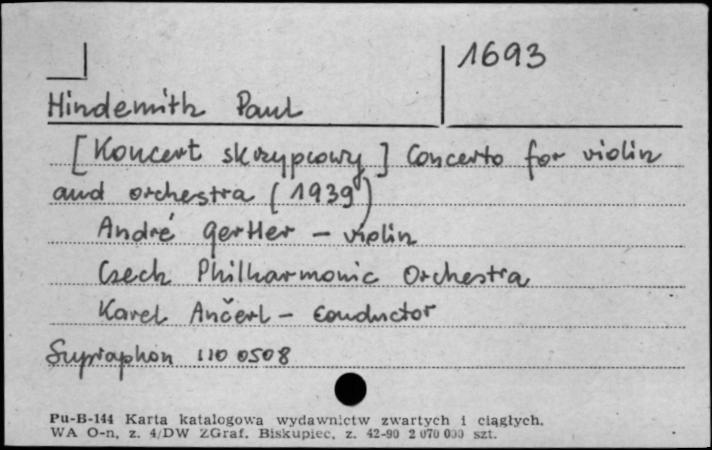 1693
Hindemith Paul
[Koncert skrzypcowy] Concerto for violin
and orchestra (1939)
André Gertler – violin
Czech Philharmonic Orchestra
Karel Ančerl – conductor
Supraphon 110 0508
Pu-B-144 Karta katalogowa wydawnictw zwartych i ciągłych.
WA O-n, z. 4/DW ZGraf. Biskupiec, z. 42-90 2 070 000 szt.